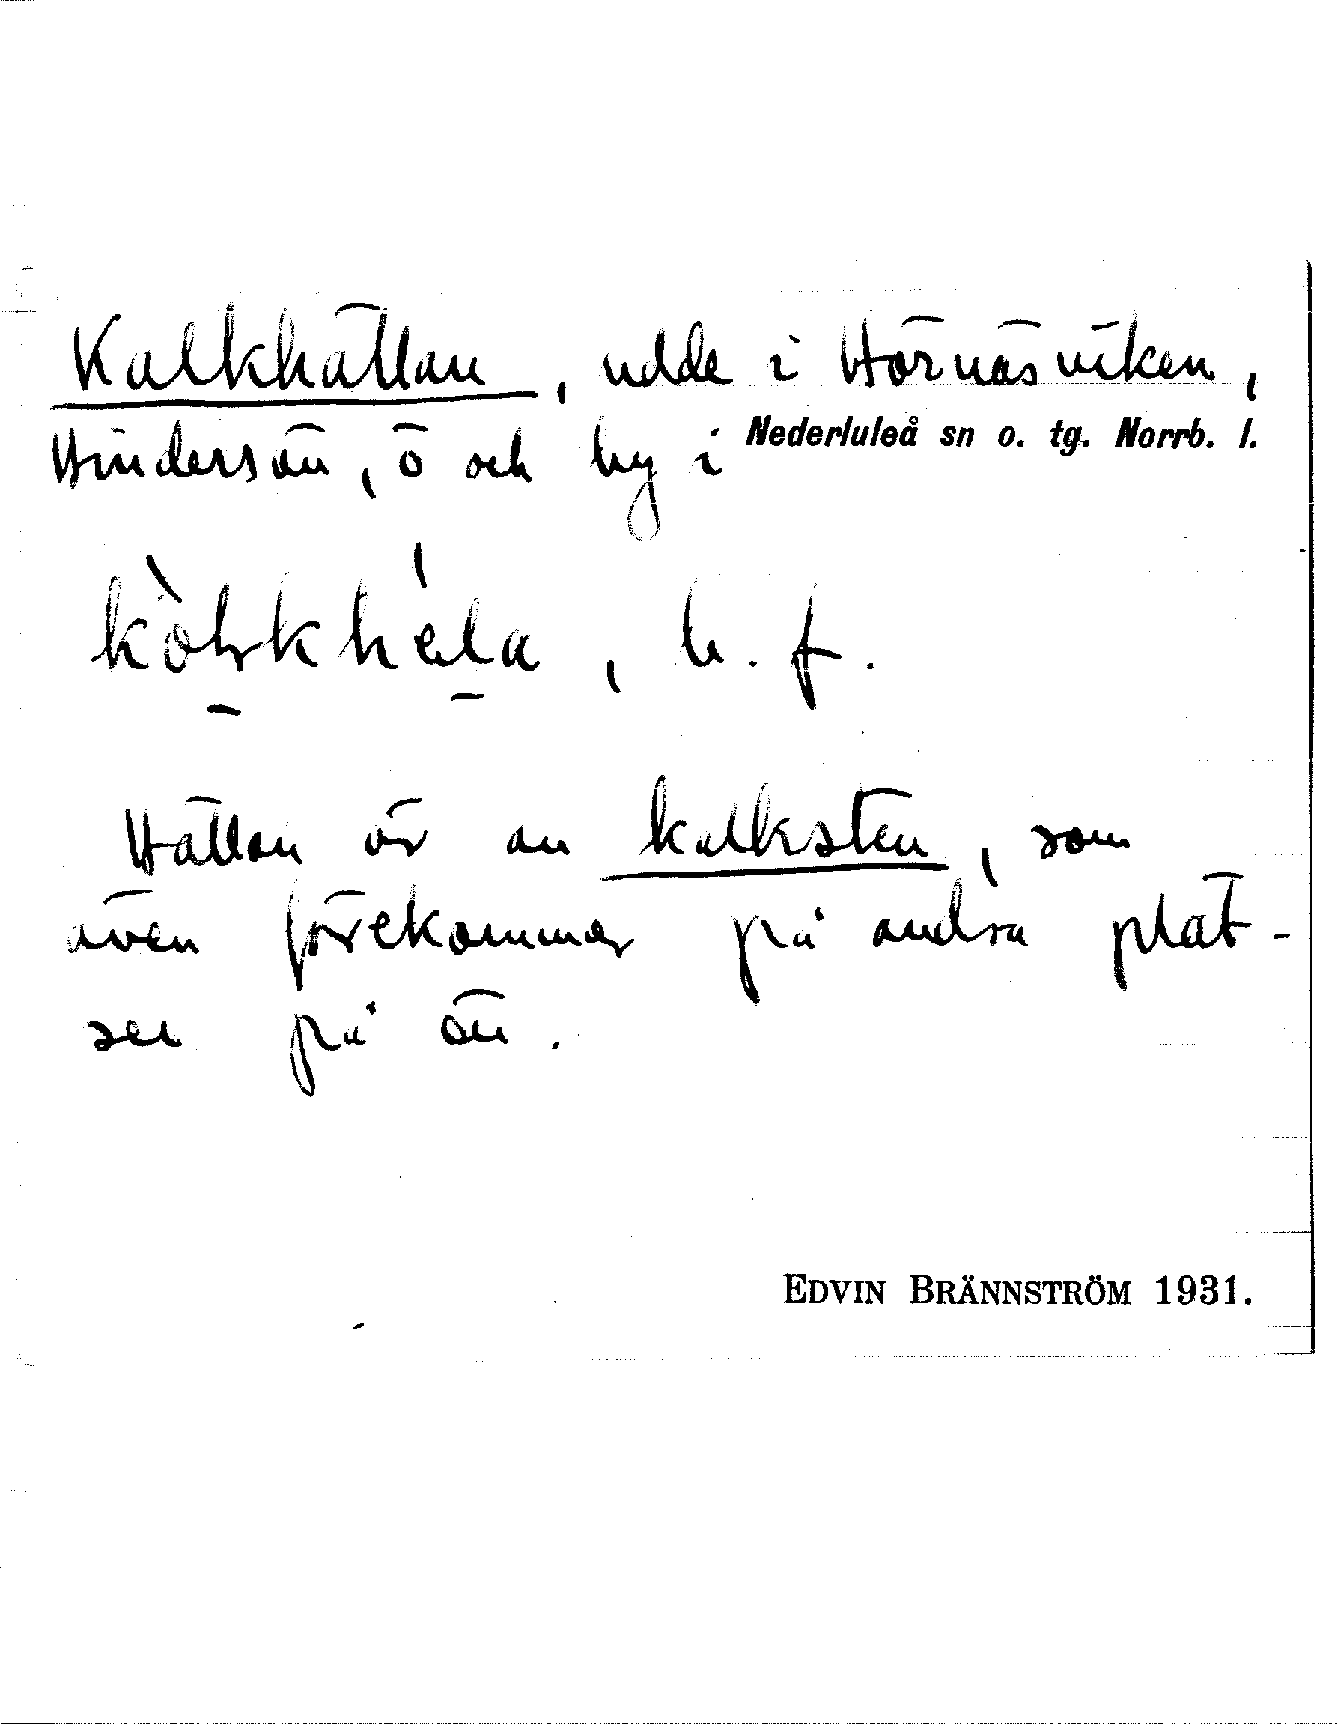 Kalkhällan, udde i Hörnäsviken,
Hindersön, ö och by i Nederluleå sn o. tg. Norrb. l.
b. f.
Hällan är en kalksten, som
även förekommer på andra plat-
ser på ön.
EDVIN BRÄNNSTRÖM 1931.